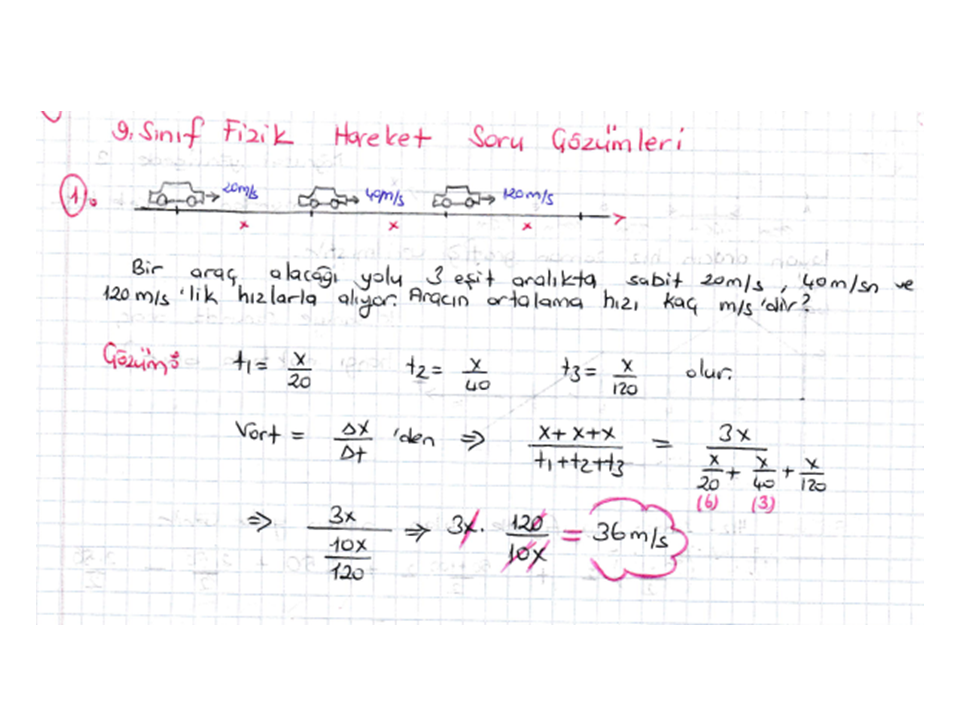 9. Sınıf Fizik Hareket Soru Çözümleri
1. 20m/s 40m/s 120m/s
x x x
Bir araç alacağı yolu 3 eşit aralıkta sabit 20m/s, 40m/sn ve
120m/s 'lik hızlarla alıyor. Aracın ortalama hızı kaç m/s'dir?
Çözüm: t1 = x/20 t2 = x/40 t3 = x/120 olur.
Vort = Δx/Δt 'den ⇒ x+x+x / t1+t2+t3 = 3x / x/20 + x/40 + x/120
(6) (3)
⇒ 3x / 10x/120 ⇒ 3x · 120/10x = 36m/s